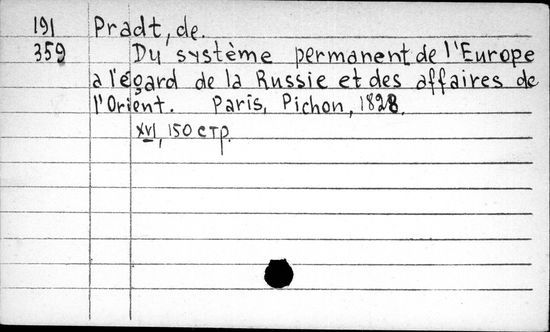 191 Pradt, de.
359 Du système permanent de l'Europe
a l'égard de la Russie et des affaires de
l'Orient. Paris, Pichon, 1828.
XVI, 150 стр.